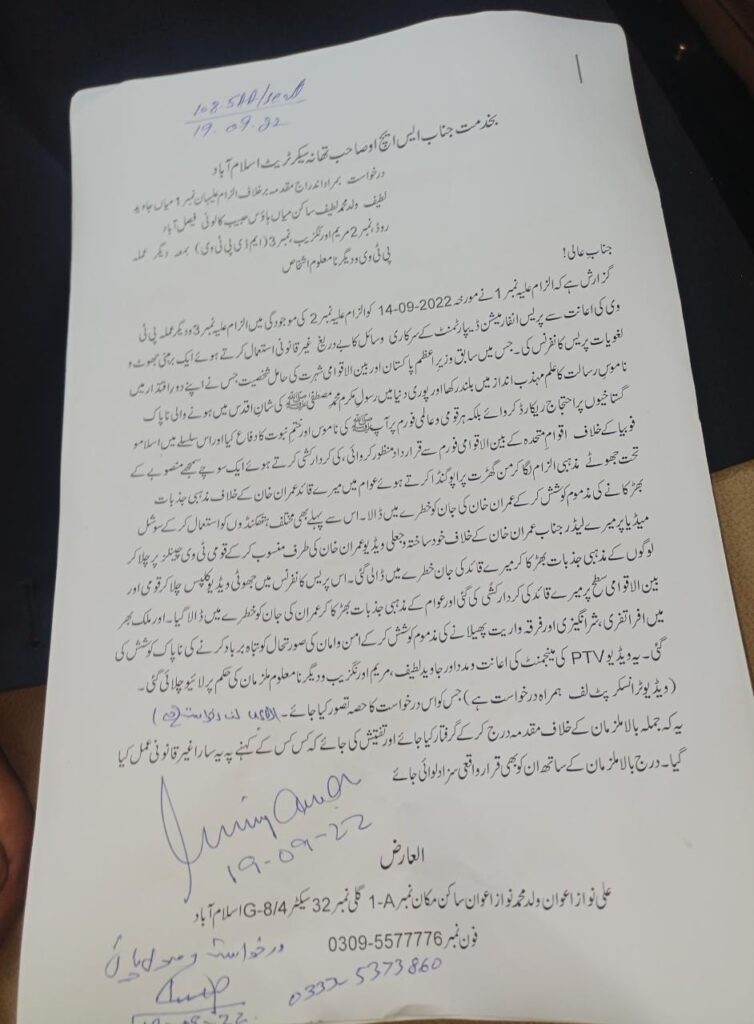 19.09.22
بخدمت جناب ایس ایچ او صاحب تھانہ سیکرٹریٹ اسلام آباد
درخواست بمراد اندراج مقدمہ برخلاف الزام علیہان نمبر 1 میاں جاوید
لطیف ولد محمد لطیف ساکن میاں ہاؤس حبیب کالونی فیصل آباد
روڈ، نمبر 2 مریم اورنگزیب، نمبر 3 (ایم ڈی پی ٹی وی) بمعہ دیگر عملہ
پی ٹی وی و دیگر نا معلوم اشخاص
جناب عالی!
گزارش ہے کہ الزام علیہ نمبر 1 نے مورخہ 2022-09-14 کو الزام علیہ نمبر 2 کی موجودگی میں الزام علیہ نمبر 3 و دیگر عملہ پی ٹی
وی کی اعانت سے پریس انفارمیشن ڈیپارٹمنٹ کے سرکاری وسائل کا بے دریغ غیر قانونی استعمال کرتے ہوئے ایک بر مبنی جھوٹ و
لغویات پریس کانفرنس کی۔ جس میں سابق وزیر اعظم پاکستان اور بین الاقوامی شہرت کی حامل شخصیت جس نے اپنے دور اقتدار میں
ناموس رسالت کا علم مہذب انداز میں بلند رکھا اور پوری دنیا میں رسول مکرم محمد مصطفیٰ ﷺ کی شان اقدس میں ہونے والی ناپاک
گستاخیوں پر احتجاج ریکارڈ کروائے بلکہ ہر قومی و عالمی فورم پر آپ ﷺ کی ناموس اور ختم نبوت کا دفاع کیا اور اس سلسلے میں اسلامو
فوبیا کے خلاف اقوام متحدہ کے بین الاقوامی فورم سے قرارداد منظور کروائی، کی کردار کشی کرتے ہوئے ایک سوچے سمجھے منصوبے کے
تحت جھوٹے مذہبی الزام لگا کر من گھڑت پراپوگنڈا کرتے ہوئے عوام میں میرے قائد عمران خان کے خلاف مذہبی جذبات
بھڑکانے کی مذموم کوشش کر کے عمران خان کی جان کو خطرے میں ڈالا۔ اس سے پہلے بھی مختلف ہتھکنڈوں کو استعمال کر کے سوشل
میڈیا پر میرے لیڈر جناب عمران خان کے خلاف خود ساختہ و جعلی ویڈیو عمران خان کی طرف منسوب کر کے قومی ٹی وی چینلز پر چلا کر
لوگوں کے مذہبی جذبات بھڑکا کر میرے قائد کی جان خطرے میں ڈالی گئی۔ اس پریس کانفرنس میں جھوٹی ویڈیو کلپس چلا کر قومی اور
بین الاقوامی سطح پر میرے قائد کی کردار کشی کی گئی اور عوام کے مذہبی جذبات بھڑکا کر عمران کی جان کو خطرے میں ڈالا گیا۔ اور ملک بھر
میں افراتفری، شر انگیزی اور فرقہ واریت پھیلانے کی مذموم کوشش کر کے امن و امان کی صورتحال کو تباہ برباد کرنے کی ناپاک کوشش کی
گئی۔ یہ ویڈیو PTV کی مینجمنٹ کی اعانت و مدد اور جاوید لطیف، مریم اورنگزیب و دیگر نا معلوم ملزمان کی حکم پر لائیو چلائی گئی۔
(ویڈیو ٹرانسکرپٹ لف ہمراہ درخواست ہے) جس کو اس درخواست کا حصہ تصور کیا جائے۔ (USB لف درخواست ہے)
یہ کہ جملہ بالا ملزمان کے خلاف مقدمہ درج کر کے گرفتار کیا جائے اور تفتیش کی جائے کہ کس کس کے کہنے پہ یہ سارا غیر قانونی عمل کیا
گیا۔ درج بالا ملزمان کے ساتھ ان کو بھی قرار واقعی سزا دلوائی جائے
19-09-22
العارض
علی نواز اعوان ولد محمد نواز اعوان ساکن مکان نمبر 1-A گلی نمبر 32 سیکٹر G-8/4 اسلام آباد
فون نمبر 0309-5577776
درخواست وصول پائی
0332 5373860
19-09-22